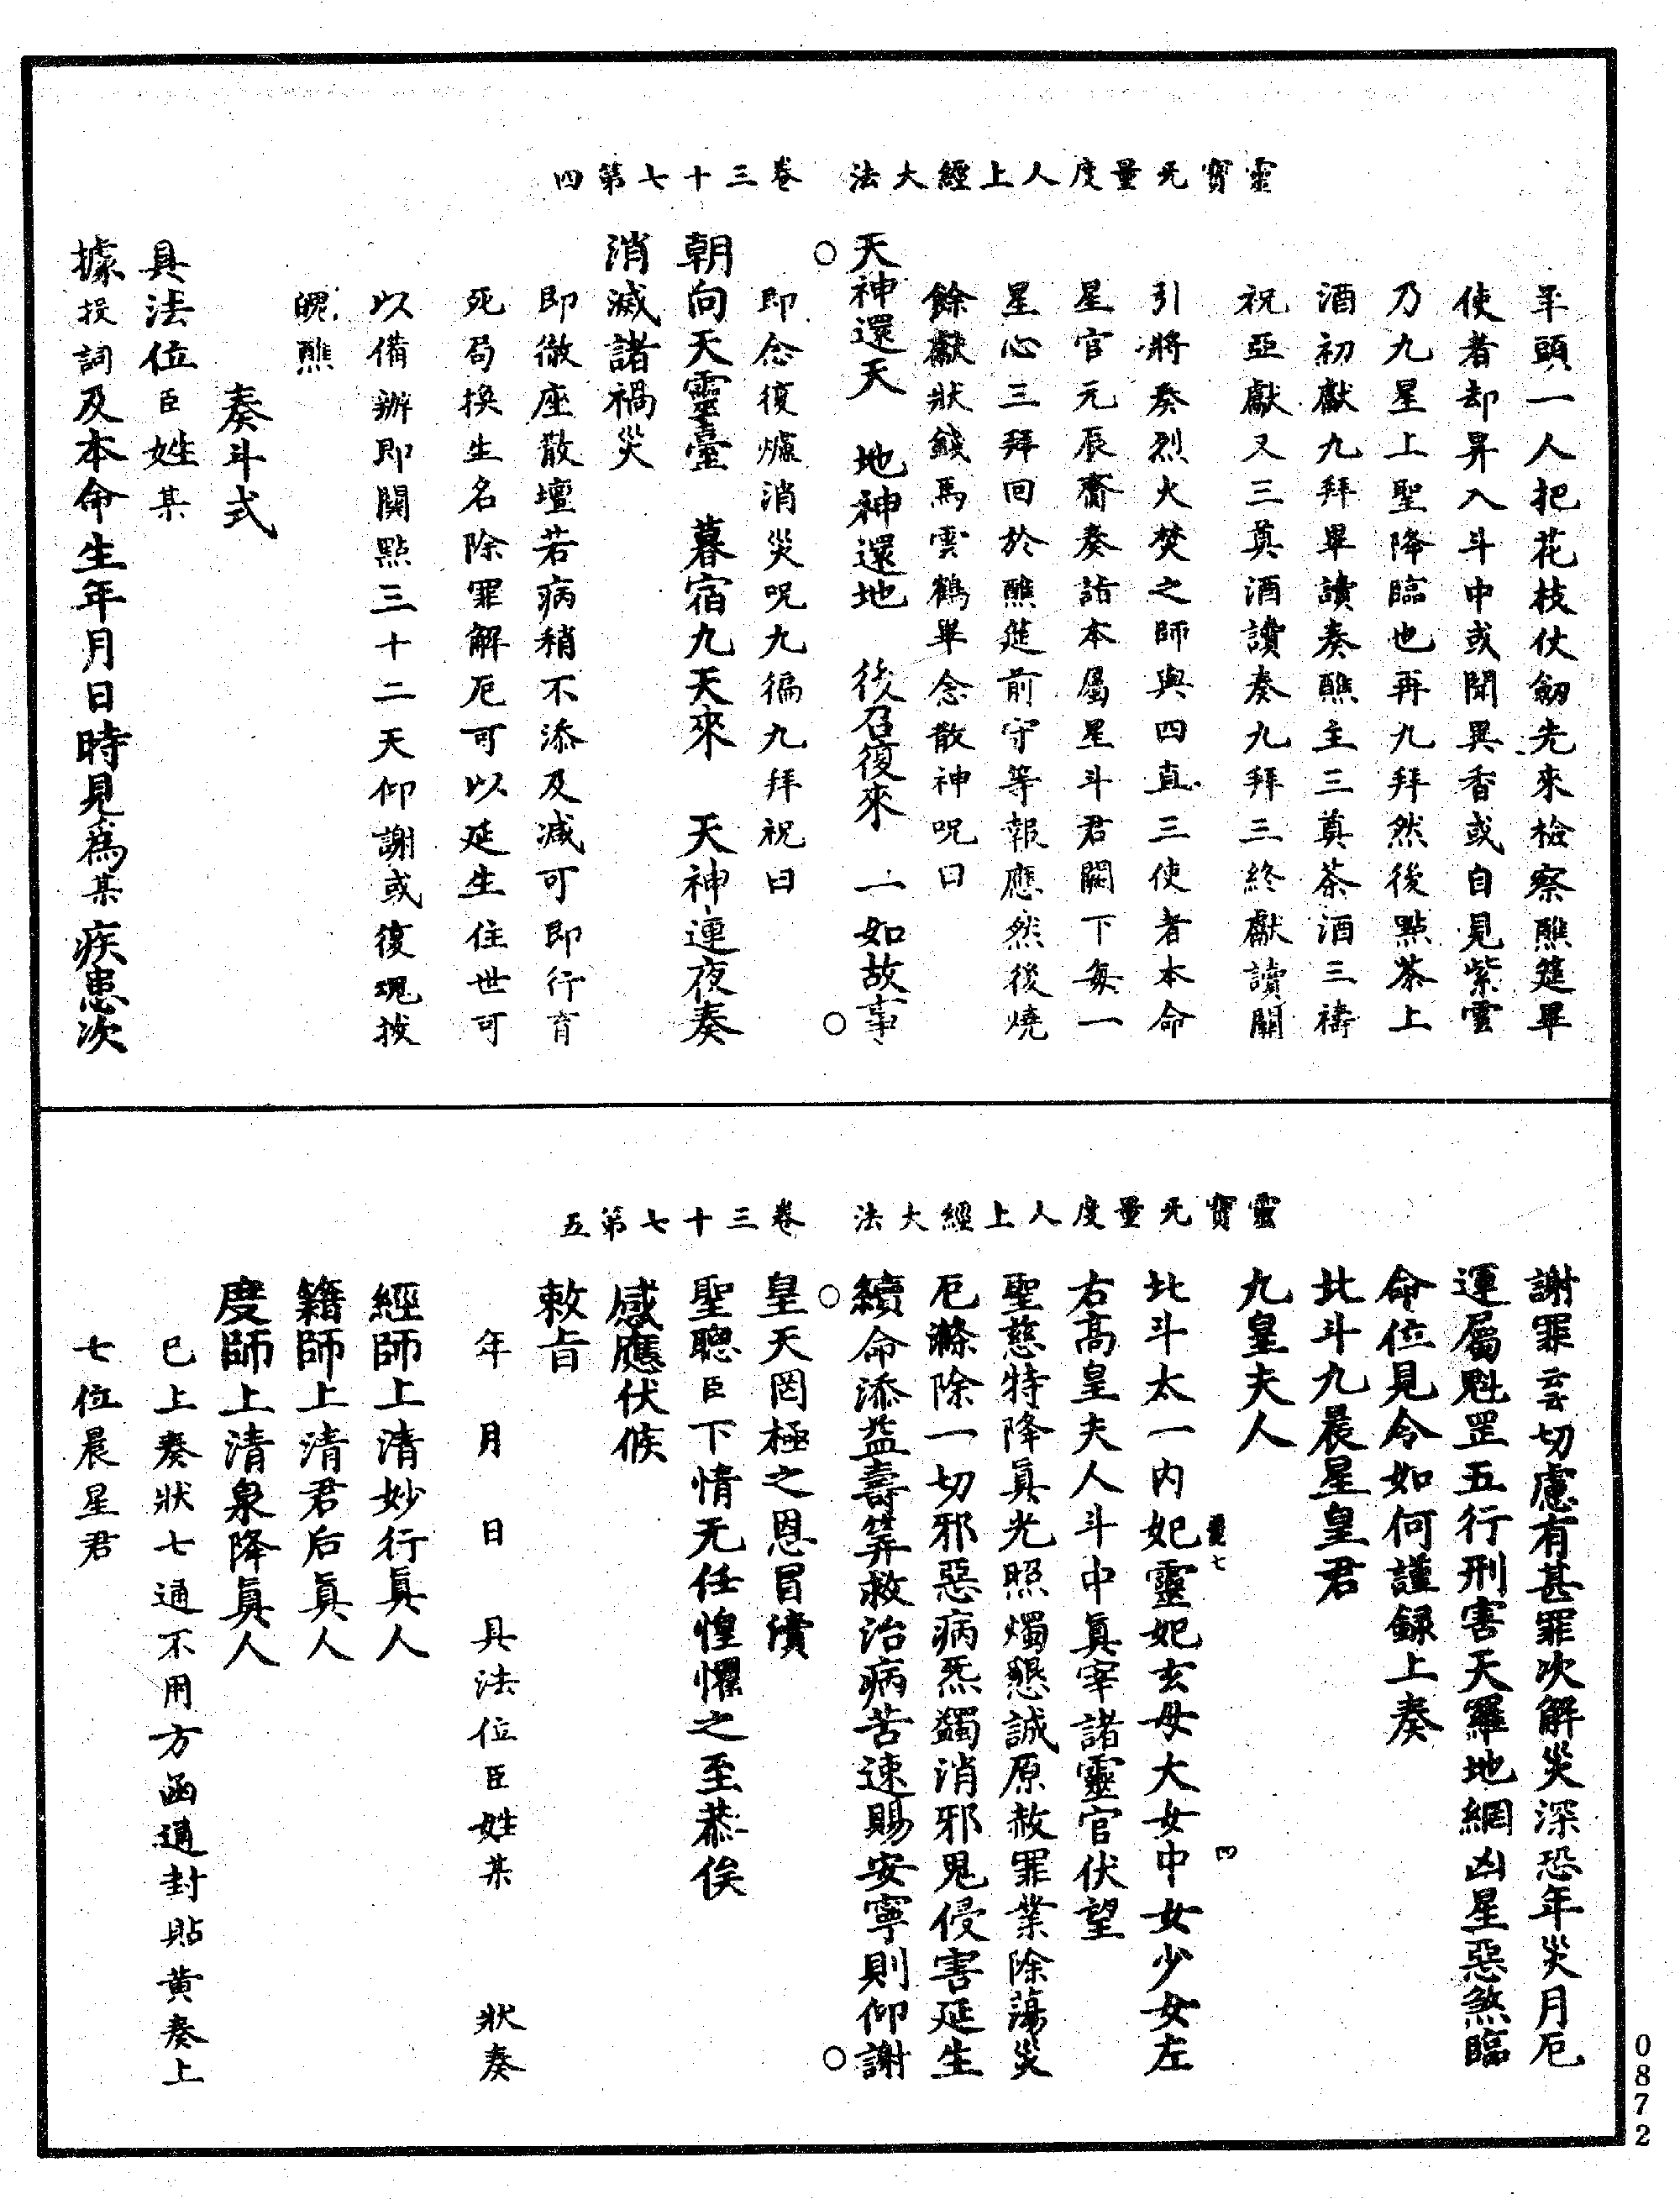 靈寶无量度人上經大法　卷三十七第四
年頭一人把花枝仗劒先來檢察醮筵畢
使者却昇入斗中或聞異香或自見紫雲
乃九星上聖降臨也再九拜然後點茶上
酒初獻九拜畢讀奏醮主三奠茶酒三禱
祝亞獻又三奠酒讀奏九拜三終獻讀關
引將奏烈火焚之師與四直三使者本命
星官元辰齎奏詣本屬星斗君闕下每一
星心三拜回於醮筵前守等報應然後燒
餘獻狀錢馬雲鶴畢念散神呪曰
天神還天　地神還地　後召復來　一如故事
即念復爐消災呪九徧九拜祝曰
朝向天靈臺　暮宿九天來　天神連夜奏
消滅諸禍災
即徹座散壇若病稍不添及减可即行育
死局換生名除罪解厄可以延生住世可
以備辦即關點三十二天仰謝或復魂拔
魄醮
奏斗式
具法位臣姓某
據投詞及本命生年月日時見爲某疾患次
靈寶无量度人上經大法　卷三十七第五
謝罪云云切慮有甚罪次解災深恐年災月厄
運屬魁罡五行刑害天羅地網凶星惡煞臨
命位見令如何謹録上奏
北斗九晨星皇君
九皇夫人
北斗太一内妃靈妃玄母大女中女少女左
右高皇夫人斗中真宰諸靈官伏望
聖慈特降真光照燭懇誠原赦罪業除蕩災
厄滌除一切邪惡病炁蠲消邪鬼侵害延生
續命添益壽筭救治病苦速賜安寧則仰謝
皇天罔極之恩冒瀆
聖聰臣下情无任惶懼之至恭俟
感應伏候
敕旨
年　月　日　具法位臣姓某　狀奏
經師上清妙行真人
籍師上清君后真人
度師上清泉降真人
已上奏狀七通不用方函通封貼黄奏上
七位晨星君
0872